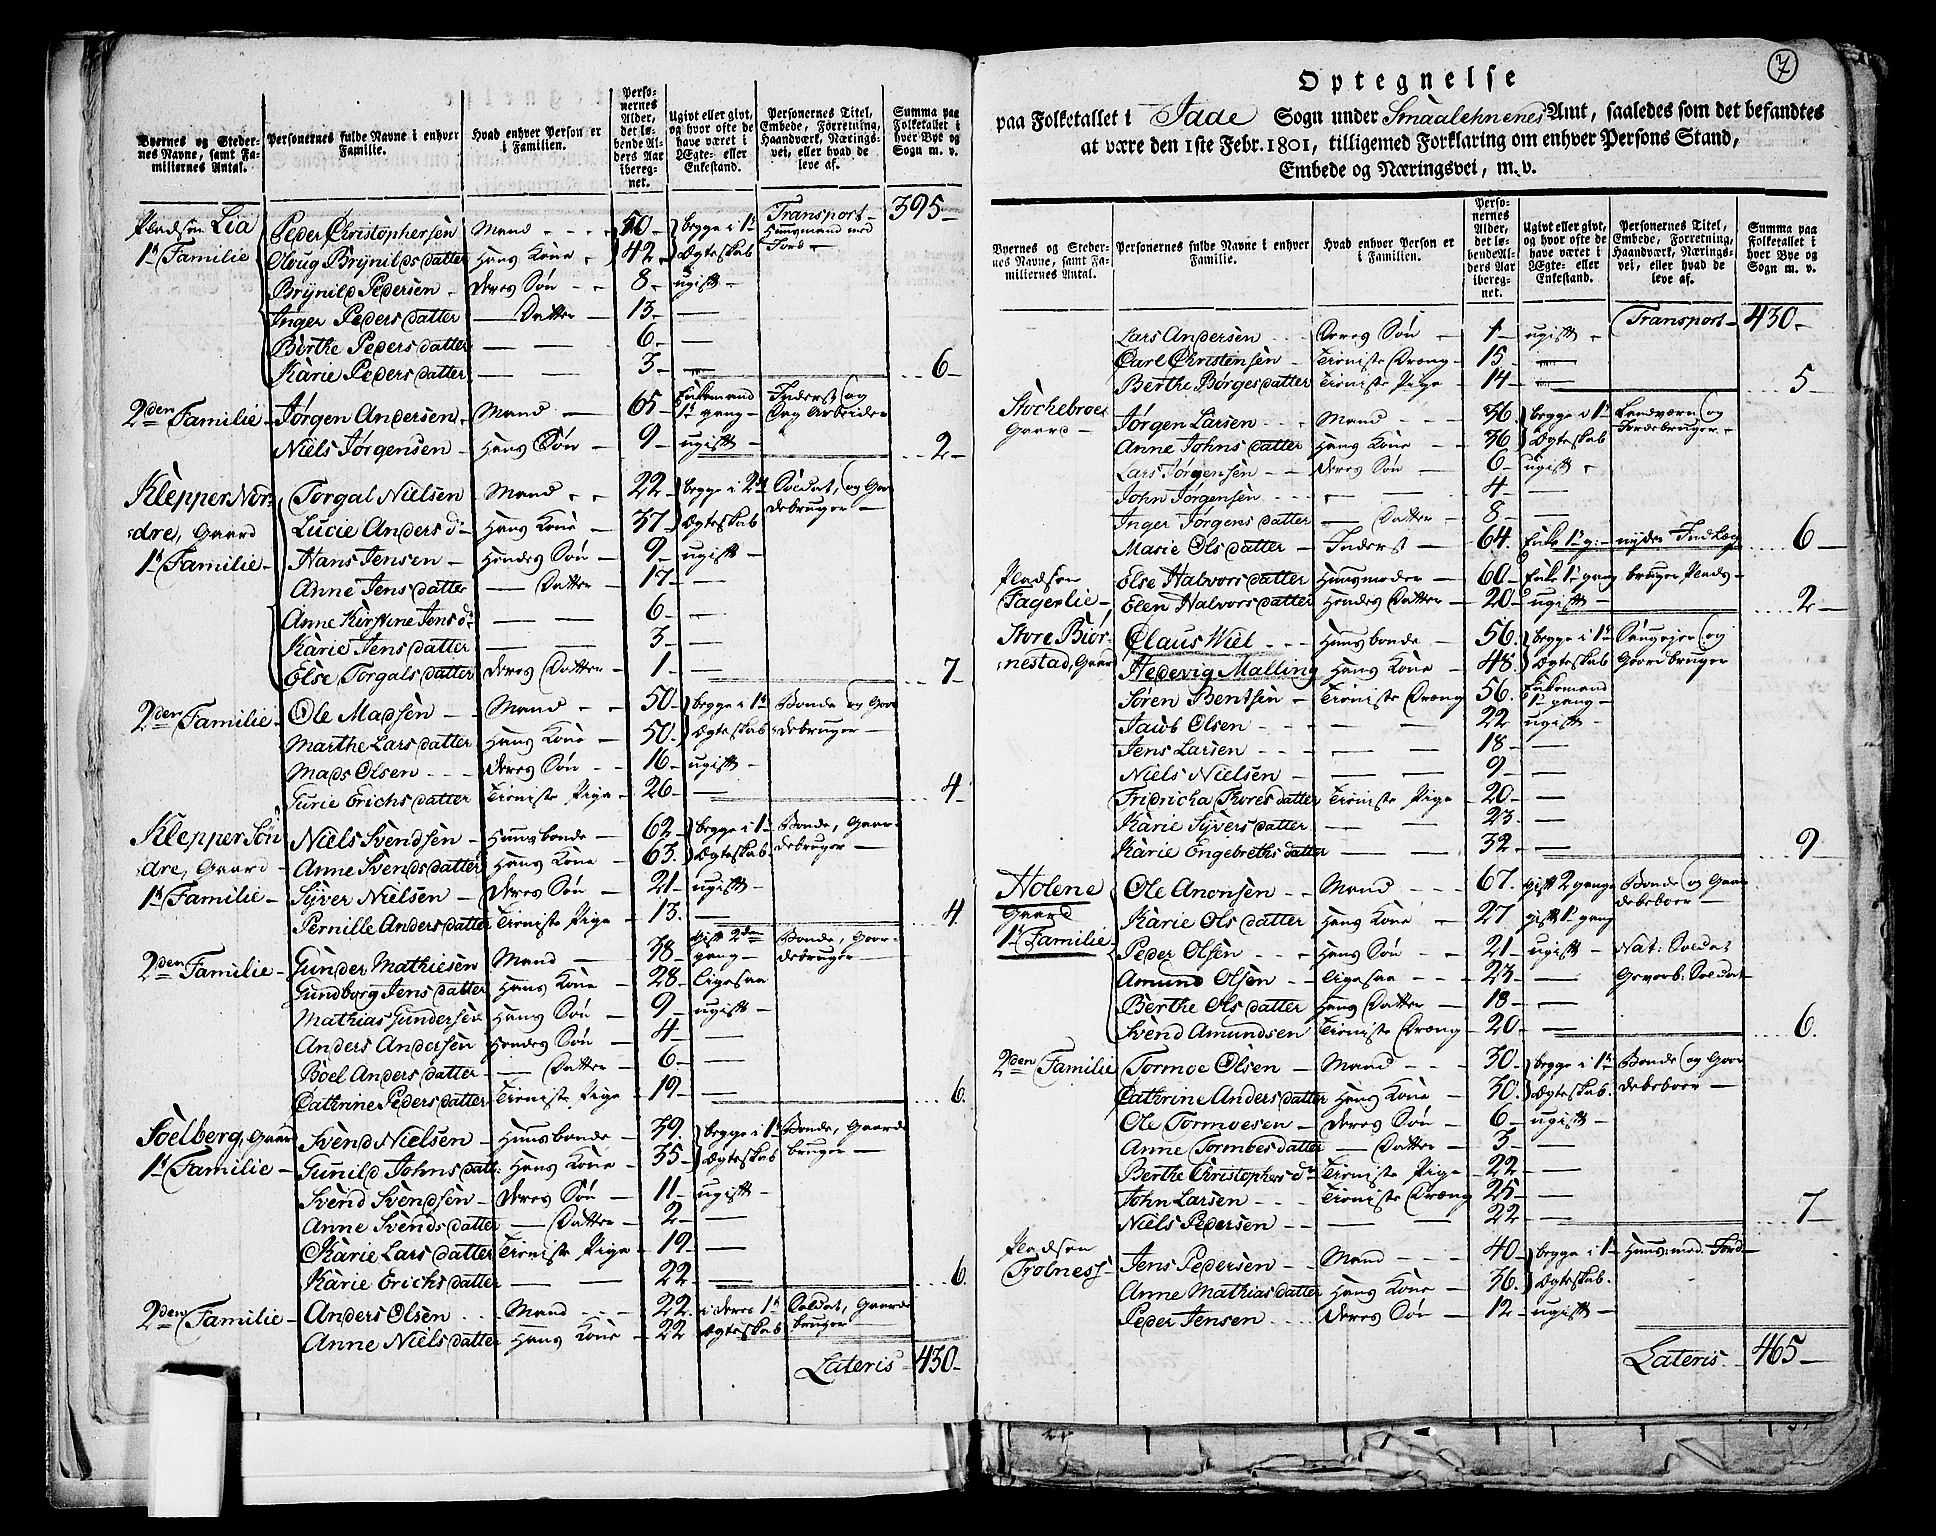 Byernes og Stedernes Navne, samt Familliernes Antal. | Personernes fulde Navne i enhver Familie. | Hvad enhver Person er i Familien. | Personernes Alder, det løbende Alders Aar iberegnet. | Ugivt eller givt, og hvor ofte de have været i Ægte- eller Enkestand. | Personernes Titel, Embede, Forretning, Haandværk, Næringsvei, eller hvad de leve af. | Summa paa Folketallet i hver Bye og Sogn m. v.
Transport - 395 -
Pladsen Lia Peder Christophersen Mand - 50 - begge i 1te Huusmand med
1te Familie Oloug Brÿnilds datter Hans Kone - 42 - Ægteskab Jord -
Brÿnild Pedersen - Deres Søn - 8 - ugift -
Inger Peders datter — Datter - 13 - —
Berthe Peders datter — — 6 - —
Karie Peders datter — — 3 - — 6 -
2den Familie - Jørgen Andersen - Mand — 65 - Enkemand Inderst og
1te gang - Dag Arbeider
Niels Jørgensen - Hans Søn - 9 - ugift - 2 -
Klepper Nor- Torgal Nielsen Mand - 22 - begge i 2det Soldat, og Gaar
dre, Gaard Lucie Anders dr Hans Kone - 37 - Ægteskab debruger —
1te Familie - Hans Jensen - Hendes Søn - 9 - ugift -
Anne Jens datter — Datter - 17 - —
Anne Kirstine Jens dr — — 6 - —
Karie Jens datter — — 3 - —
Else Torgals datter Deres Datter - 1 - — 7 -
2den Familie - Ole Madsen - Mand - 50 - begge i 1te Bonde og Gaar
Marthe Lars datter Hans Kone - 50 - Ægteskab debruger —
Mads Olsen - Deres Søn - 16 - ugift -
Gurie Erichs datter Tieniste Pige - 26 - — 4 -
Klepper Søn Niels Svendsen - Huusbonde - 62 - begge i 1te Bonde, Gaar-
dre, Gaard - Anne Svends datter Hans Kone - 63 - Ægteskab debruger —
1te Familie - Syver Nielsen - Deres Søn - 21 - ugift -
Pernille Anders datter Tieniste Pige - 13 - — 4
2den Familie - Gunder Mathiesen Mand — 38 - gift 2den gang - Bonde, Gaardebruger —
Gundborg Jens datter Hans Kone - 28 - ligesaa
Mathias Gundersen Hans Søn - 9 - ugift -
Anders Andersen Hendes Søn - 4 - —
Boel Anders datter — Datter - 6 - —
Cathrine Peders datter Tieniste Pige - 19 - — 6
Soelberg, Gaard Svend Nielsen - Huusbonde - 39 - begge i 1te Bonde, Gaard
1te Familie - Gunild Johns datt: Hans Kone - 35 - Ægteskab bruger —
Svend Svendsen - Deres Søn - 11 - ugift -
Anne Svends datter — Datter - 2 - —
Karie Lars datter Tieniste Pige - 19 - —
Karie Erichs datter — — 22 - — 6
2den Familie - Anders Olsen - Mand - 22 - i deres 1te Soldat, Gaard
Anne Niels datter Hans Kone - 22 Ægteskab bruger —
Lateris - 430 -
7
Optegnelse
paa Folketallet i Jade Sogn under Smaalehnenes Amt, saaledes som det befandtes
at være den 1ste Febr. 1801, tilligemed Forklaring om enhver Persons Stand,
Embede og Næringsvei, m. v.
Byernes og Stedernes Navne, samt Familliernes Antal. | Personernes fulde Navne i enhver Familie. | Hvad enhver Person er i Familien. | Personernes Alder, det løbende Alders Aar iberegnet. | Ugivt eller givt, og hvor ofte de have været i Ægte- eller Enkestand. | Personernes Titel, Embede, Forretning, Haandværk, Næringsvei, eller hvad de leve af. | Summa paa Folketallet i hver Bye og Sogn m. v.
Transport - 430 -
Lars Andersen - Deres Søn - 1 - ugift -
Carl Christensen - Tieniste Dreng - 15 - —
Berthe Børges datter Tieniste Pige - 14 - — 5 -
Stochebroe Jørgen Larsen - Mand - 36 - begge i 1te Landværn og
Gaard - Anne Johns datter Hans Kone - 36 Ægteskab Jordebruger -
Lars Jørgensen - Deres Søn - 6 - ugift -
John Jørgensen - — 4 - —
Inger Jørgens datter — Datter - 8 - —
Marie Ols datter - Inderst - 64 - Enke 1te g: - nyder Indlæg 6 -
Pladsen Else Halvors datter Huusmoder - 60 - Enke 1te gang bruger Plads -
Fagerlie - Elen Halvors datter Hendes Datter - 20 - ugift - 2 -
Store Biør- Claus Wiel - Huusbonde - 56 - begge i 1te Sangejer og
nestad, Gaard Hedevig Malling Hans Kone - 48 - Ægteskab Gaardbruger
Søren Bentsen Tieniste Dreng - 56 - Enkemand 1te gang -
Jacob Olsen - — — 22 ugift -
Jens Larsen - — — 18 - —
Niels Nielsen - — — 9 - —
Fridricha Thores datter Tieniste Pige - 20 - —
Karie Syvers datter — — 23 - —
Karie Engebreths datter — — 32 - — 9
Holene Ole Anonsen - Mand - 67 - gift 2 gange Bonde og Gaar
Gaard Karie Ols datter Hans Kone - 27 gift 1te gang debeboer —
1te Familie - Peder Olsen - Hans Søn - 21 - ugift - Nat: Soldat
Amund Olsen - ligesaa - 23 - — Gevorb: Soldat
Berthe Ols datter Hans Datter - 18 - —
Svend Amundsen - Tieniste Dreng - 20 - — 6.
2den Familie Tormoe Olsen - Mand - 30 - begge i 1te Bonde og Gaar
Cathrine Anders datter Hans Kone - 30 - Ægteskab. debeboer —
Ole Tormoesen - Deres Søn - 6 - ugift -
Anne Tormoes datter — Datter - 3 - —
Berthe Christophers dr Tieniste Pige - 22 - —
John Larsen - Tieniste Dreng 25 - —
Niels Pedersen - — — 22 - — 7
Pladsen Jens Pedersen - Mand - 40 - begge i 1te Huus: med Jord -
Trolness - Anne Mathias datter Hans Kone - 36 - Ægteskab.
Peder Jensen - Deres Søn - 12 - ugift -
Lateris - 465 -